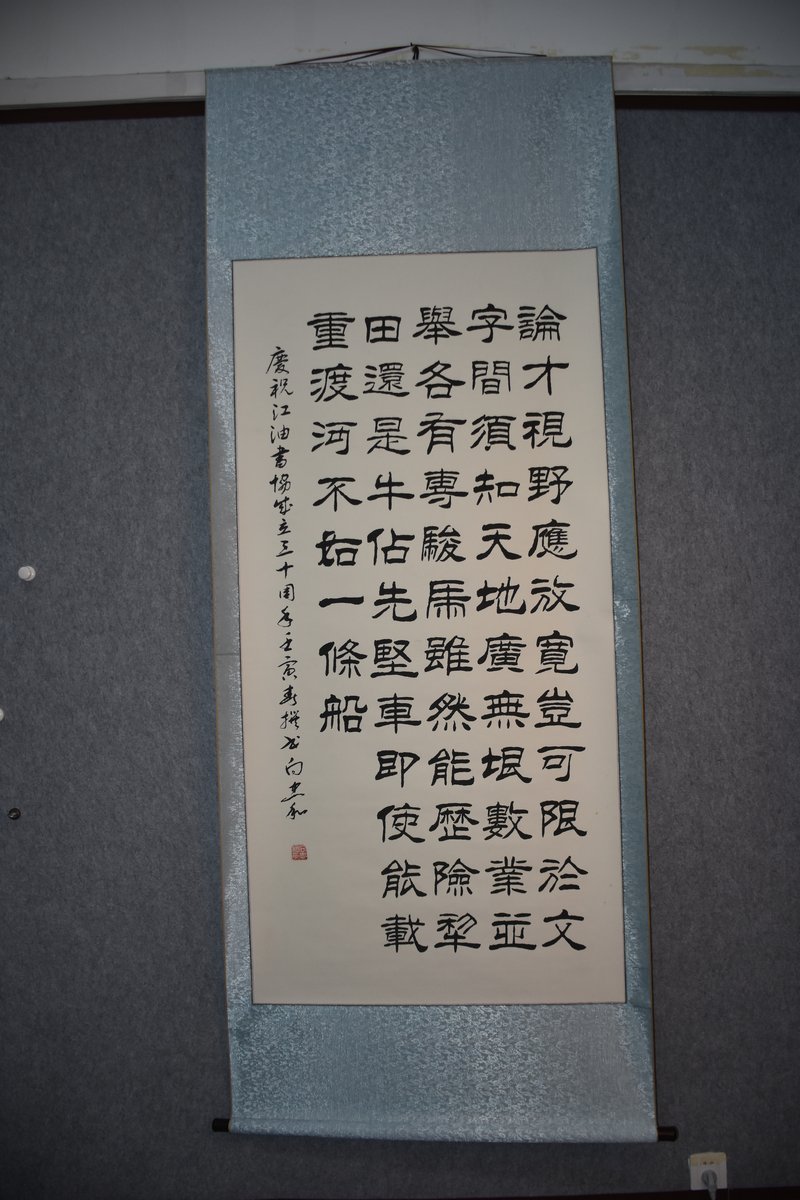 論才視野應放寬豈可限於文
字間須知天地廣無垠數業並
舉各有專駿馬雖然能歷險犁
田還是牛佔先堅車即使能載
重渡河不如一條船
慶祝江油書協成立三十周年壬寅春撰書向忠和